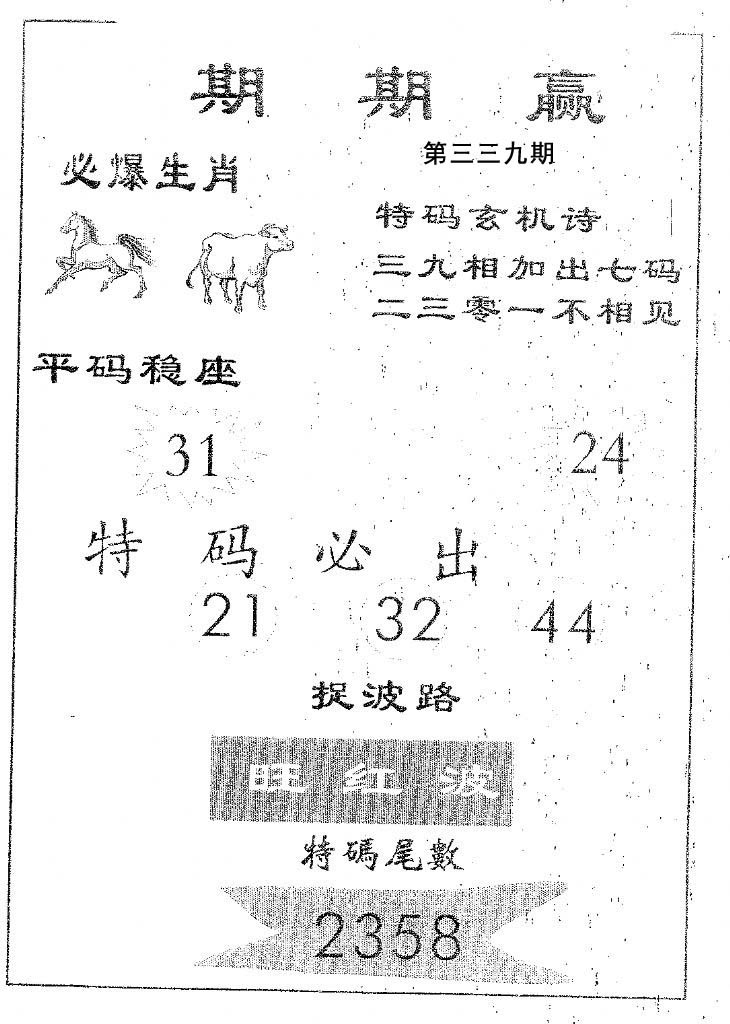 期 期 赢
第三三九期
必爆生肖
特码玄机诗
三九相加出七码
二三零一不相见
平码稳座
31 24
特 码 必 出
21 32 44
捉波路
旺 红 波
特碼尾數
2358